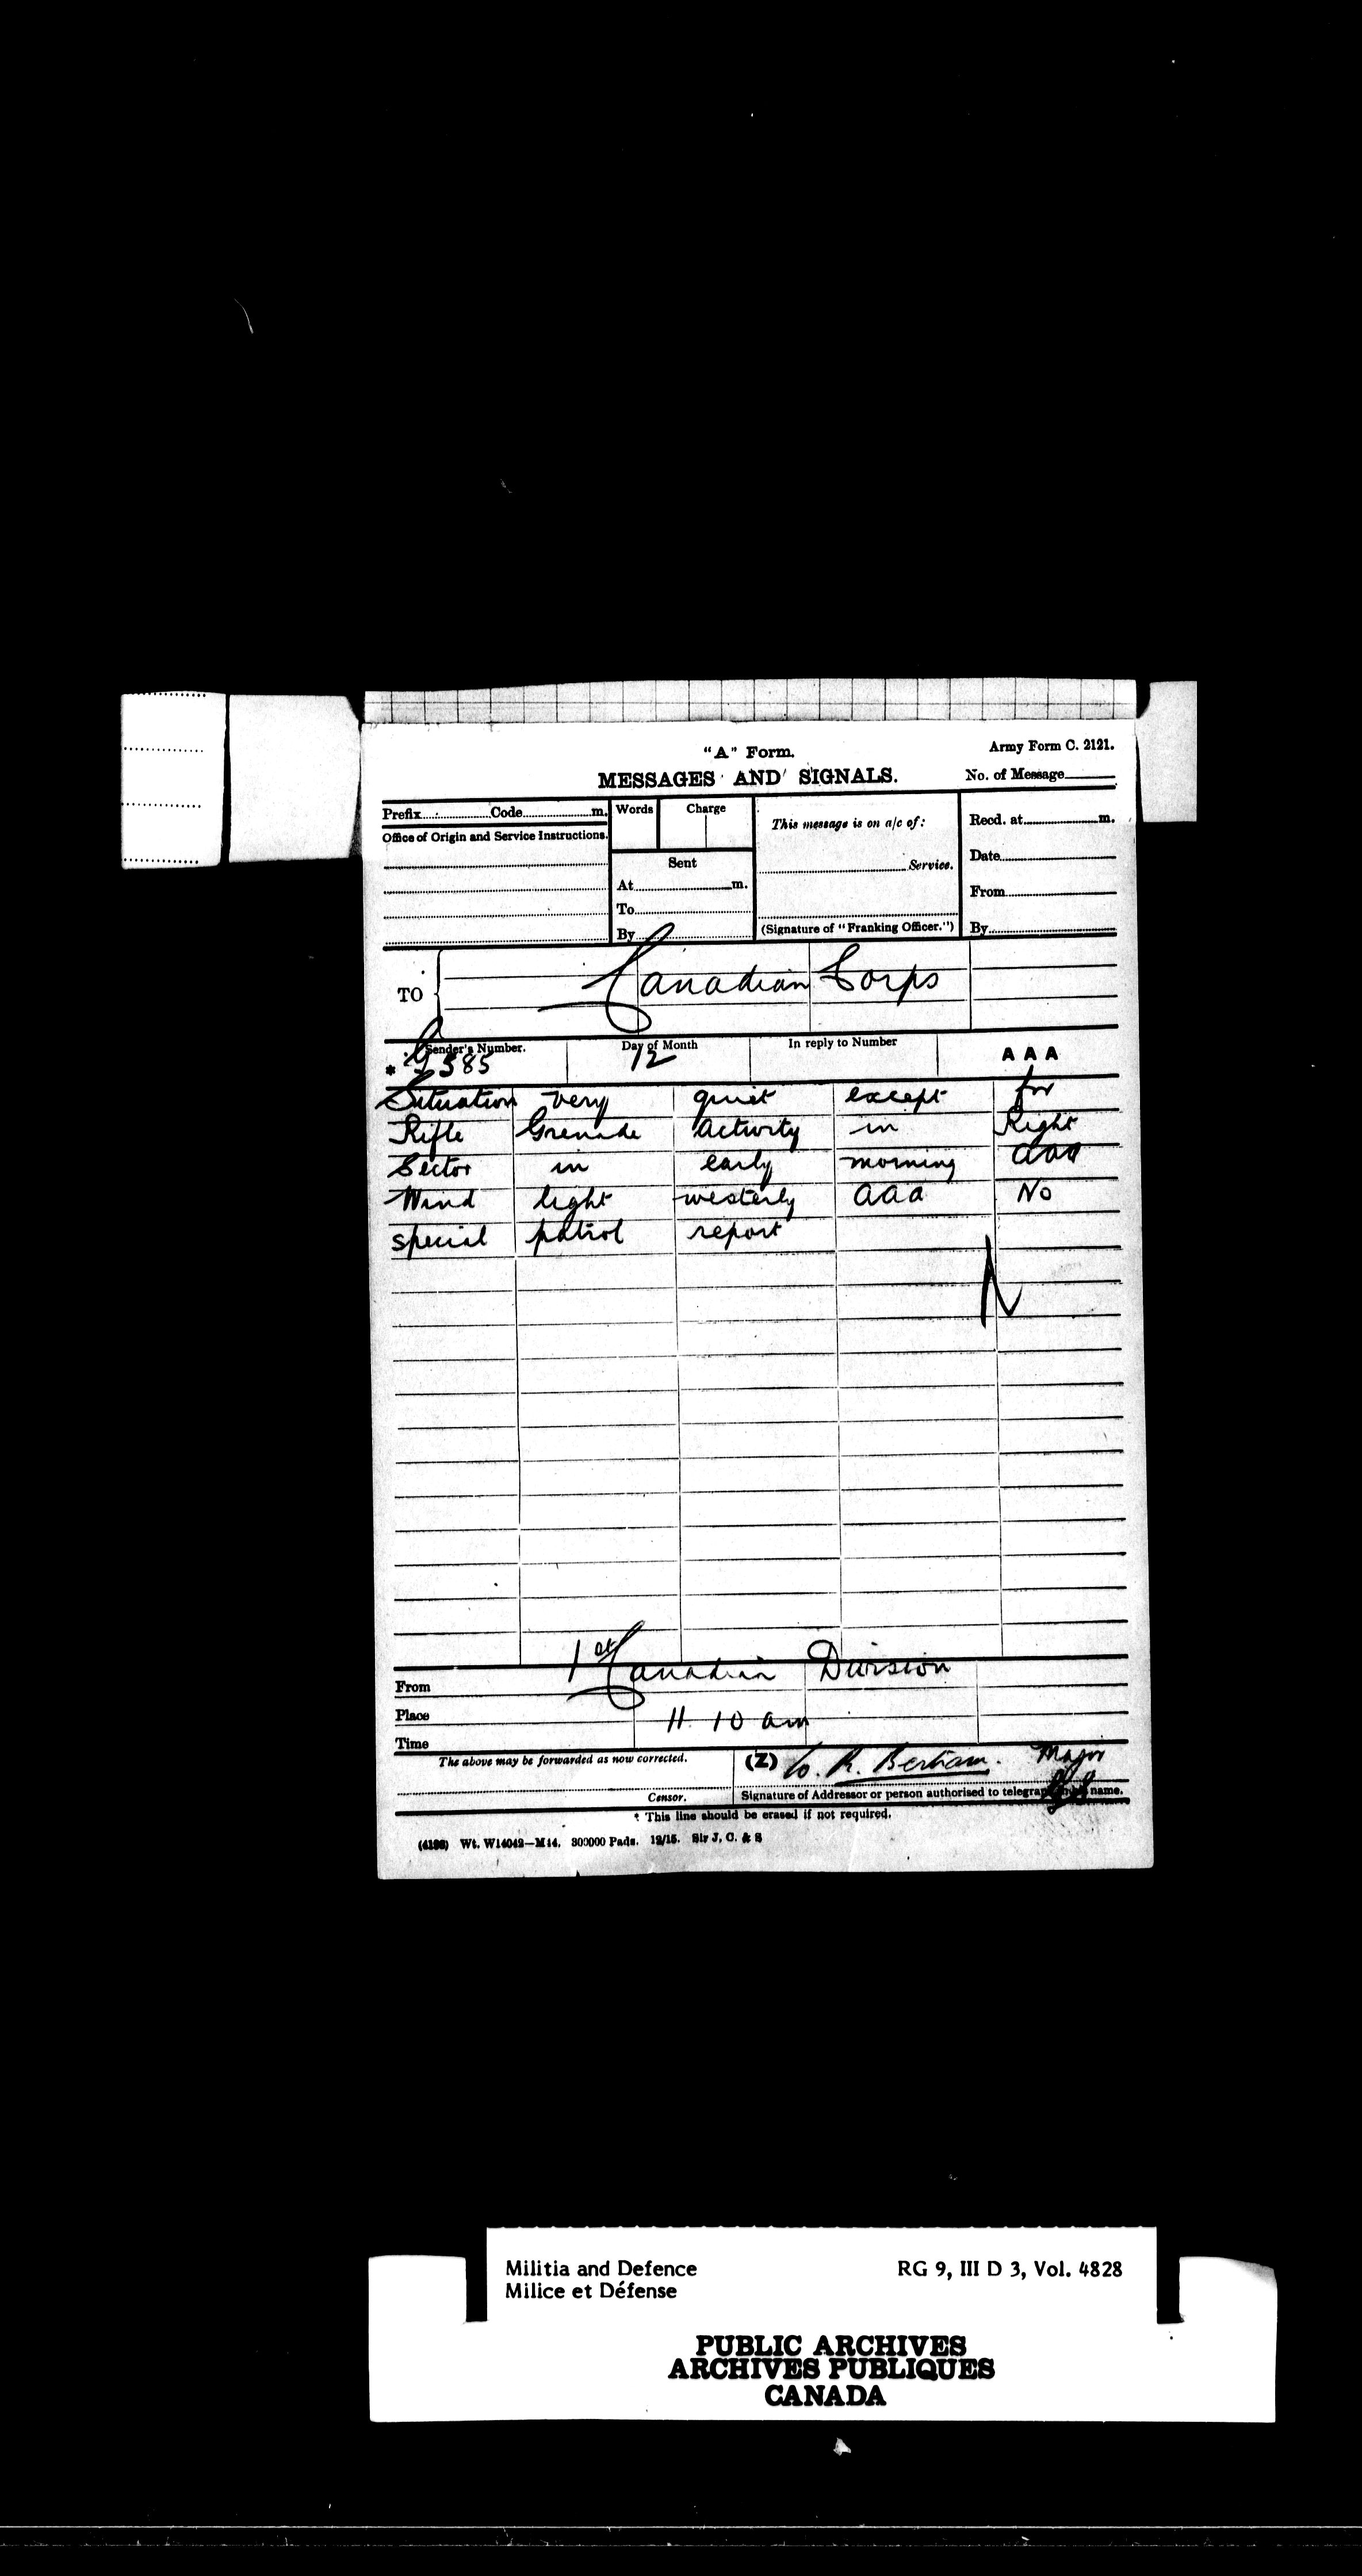 "A" Form.
Army Form C. 2121.
MESSAGES AND SIGNALS.
No. of Message
Prefix Code m.
Words Charge
This message is on a/c of:
Recd. at m.
Office of Origin and Service Instructions.
Sent
Service.
Date
At m.
From
To
By
(Signature of "Franking Officer.")
By
TO
Canadian Corps
Sender's Number.
Day of Month
In reply to Number
AAA
* G 385
12
Situation very quiet except for
Rifle Grenade activity in Right
Sector in early morning aaa
Wind light westerly aaa No
special patrol report
From
1st Canadian Division
Place
Time
11.10 am
The above may be forwarded as now corrected.
(Z)
R. Bertram. Major
GS
Censor.
Signature of Addressor or person authorised to telegraph in his name.
* This line should be erased if not required.
Wt. W14042—M44. 300000 Pads. 12/15. Sir J. C. & S
Militia and Defence
RG 9, III D 3, Vol. 4828
Milice et Défense
PUBLIC ARCHIVES
ARCHIVES PUBLIQUES
CANADA